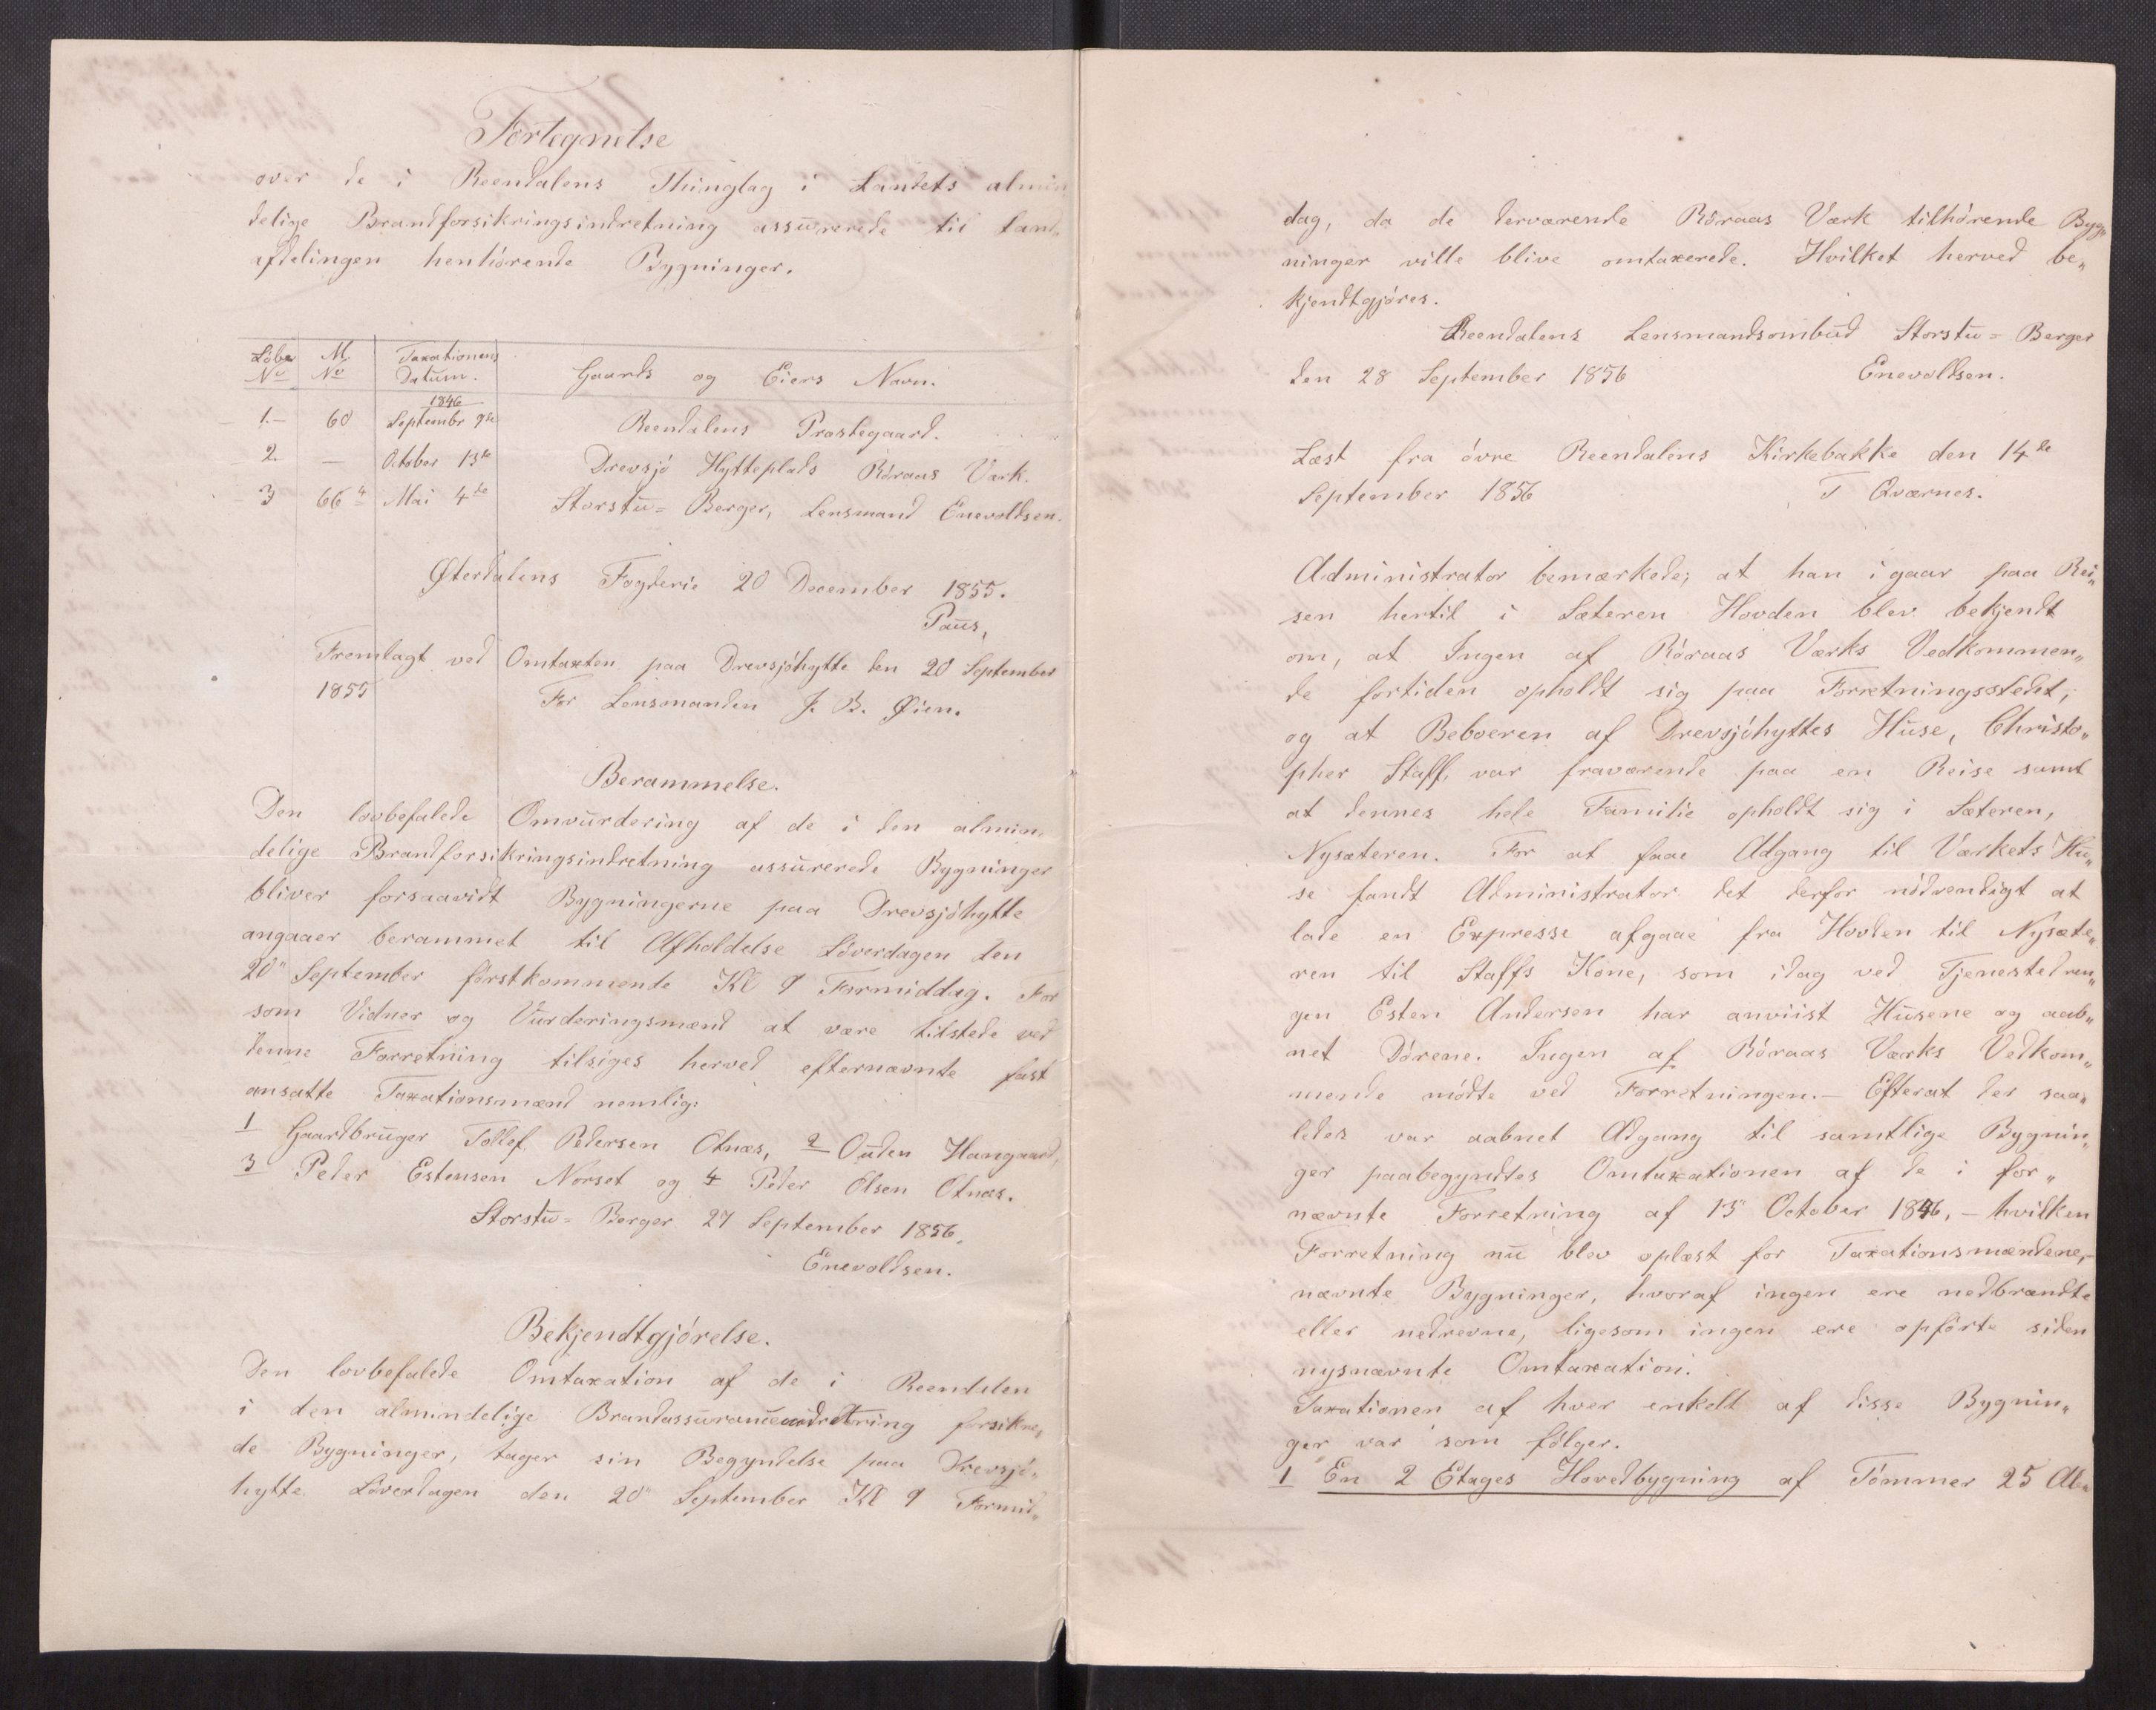 Fortegnelse
over de i Reendalens Thinglag i Landets almin
delige Brandforsikringsindretning assurerede til Land„
afdelingen henhörende Bygninger.
Löbe No | M. No | Taxationens Datum. | Gaards og Eiers Navn.
1846
1.– 60 Septembr 9de Reendalens Præstegaard.
2. – October 13de Drevsjö Hytteplads Röraas Værk.
3 66 4 Mai 4de Storstu= Berger, Lensmand Enevoldsen.
Østerdalens Fogderie 20 December 1855.
Paus,
Fremlagt ved Omtaxten paa Drevsjöhytte den 20 September
1855 For Lensmanden J. B. Øien.
Berammelse.
Den lovbefalede Omvurdering af de i den almin„
delige Brandforsikringsindretning assurerede Bygninger
bliver forsaavidt Bygningerne paa Drevsjöhytte
angaaer berammet til Afholdelse Löverdagen den
20" September förstkommende Kl 9 Formiddag. For
som Vidner og Vurderingsmænd at være tilstede ved
denne Forretning tilsiges herved efternævnte fast
ansatte Taxationsmænd nemlig:
1 Gaardbruger Tollef Pedersen Otnæs, 2 Ouden Haugaard,
3 Peder Estensen Norset og 4 Peder Olsen Otnæs.
Storstu= Berger 27 September 1856.
Enevoldsen.
Bekjendtgjörelse.
Den lovbefalede Omtaxation af de i Reendalen
i den almindelige Brandassuranceindretning forsikre„
de Bygninger, tager sin Begyndelse paa Drevsjö„
hytte Löverdagen den 20" September Kl 9 Formid„
dag, da de derværende Röraas Værk tilhörende Byg„
ninger ville blive omtaxerede. Hvilket herved be„
kjendtgjöres.
Reendalens Lensmandsombud Storstu= Berger
den 28 September 1856 Enevoldsen.
Læst fra övre Reendalens Kirkebakke den 14de
September 1856 T Qværnes.
Administrator bemærkede, at han igaar paa Rei„
sen hertil i Sæteren Hovden blev bekjendt
om, at Ingen af Röraas Værks Vedkommen„
de fortiden opholdt sig paa Forretningsstedet,
og at Beboeren af Drevsjöhyttes Huse, Christo„
pher Staff, var fraværende paa en Reise samt
at dennes hele Familie opholdt sig i Sæteren,
Nysæteren. For at faae Adgang til Værkets Hu„
se fandt Administrator det derfor nödvendigt at
lade en Expresse afgaae fra Hovden til Nysæte„
ren til Staffs Kone, som idag ved Tjenestedren„
gen Esten Andersen har anviist Husene og aab„
net Dörene. Ingen af Röraas Værks Vedkom„
mende mödte ved Forretningen.– Efterat der saa„
ledes var aabnet Adgang til samtlige Bygnin„
ger paabegyndtes Omtaxationen af de i for„
nævnte Forretning af 13" October 1846, – hvilken
Forretning nu blev oplæst for Taxationsmændene,–
nævnte Bygninger, hvoraf ingen ere nedbrændte
eller nedrevne, ligesom ingen ere opförte siden
nysnævnte Omtaxation.
Taxationen af hver enkelt af disse Bygnin„
ger var som fölger.
1 En 2 Etages Hovedbygning af Tömmer 25 Al„